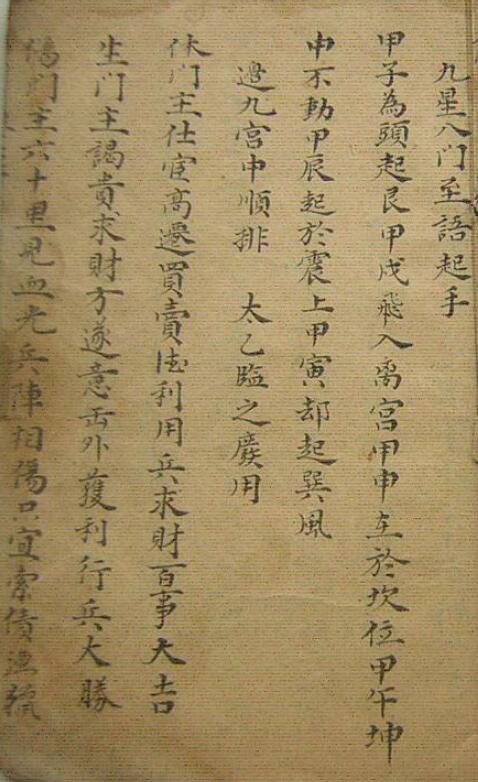 九星八门至語起手
甲子為頭起艮甲戌飛入离宫甲申在於坎位甲午坤
中不動甲辰起於震上甲寅却起巽風
邉九宫中順排 太乙臨之廢用
休门主仕宦高遷買賣利用兵求財百事大吉
生门主謁貴求財方遂意出外獲利行兵大勝
傷门主六十里見血光兵陣相傷只宜索債漁獵